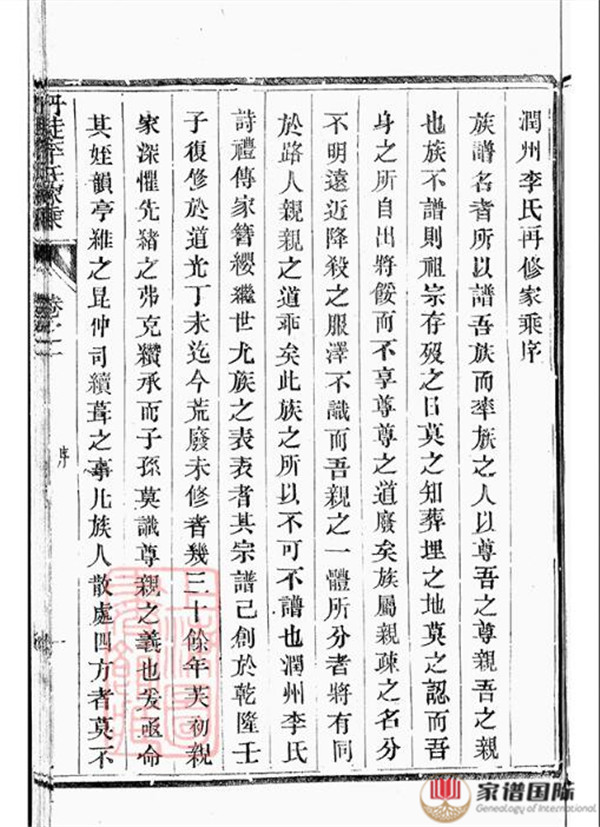 潤州李氏再修家乘序
族譜名者所以譜吾族而率族之人以尊吾之尊親吾之親
也族不譜則祖宗存歿之日莫之知葬埋之地莫之認而吾
身之所自出將餒而不享尊尊之道廢矣族屬親疎之名分
不明遠近降殺之服澤不識而吾親之一體所分者將有同
於路人親親之道乖矣此族之所以不可不譜也潤州李氏
詩禮傳家簪纓繼世尤族之表表者其宗譜已創於乾隆壬
子復修於道光丁未迄今荒廢未修者幾三十餘年芙初親
家深懼先緒之弗克纘承而子孫莫識尊親之義也爰亟命
其姪韻亭雒之昆仲司續葺之事凡族人散處四方者莫不
丹徒李氏家乘
卷之二
序
一
家谱国际
Genealogy of International